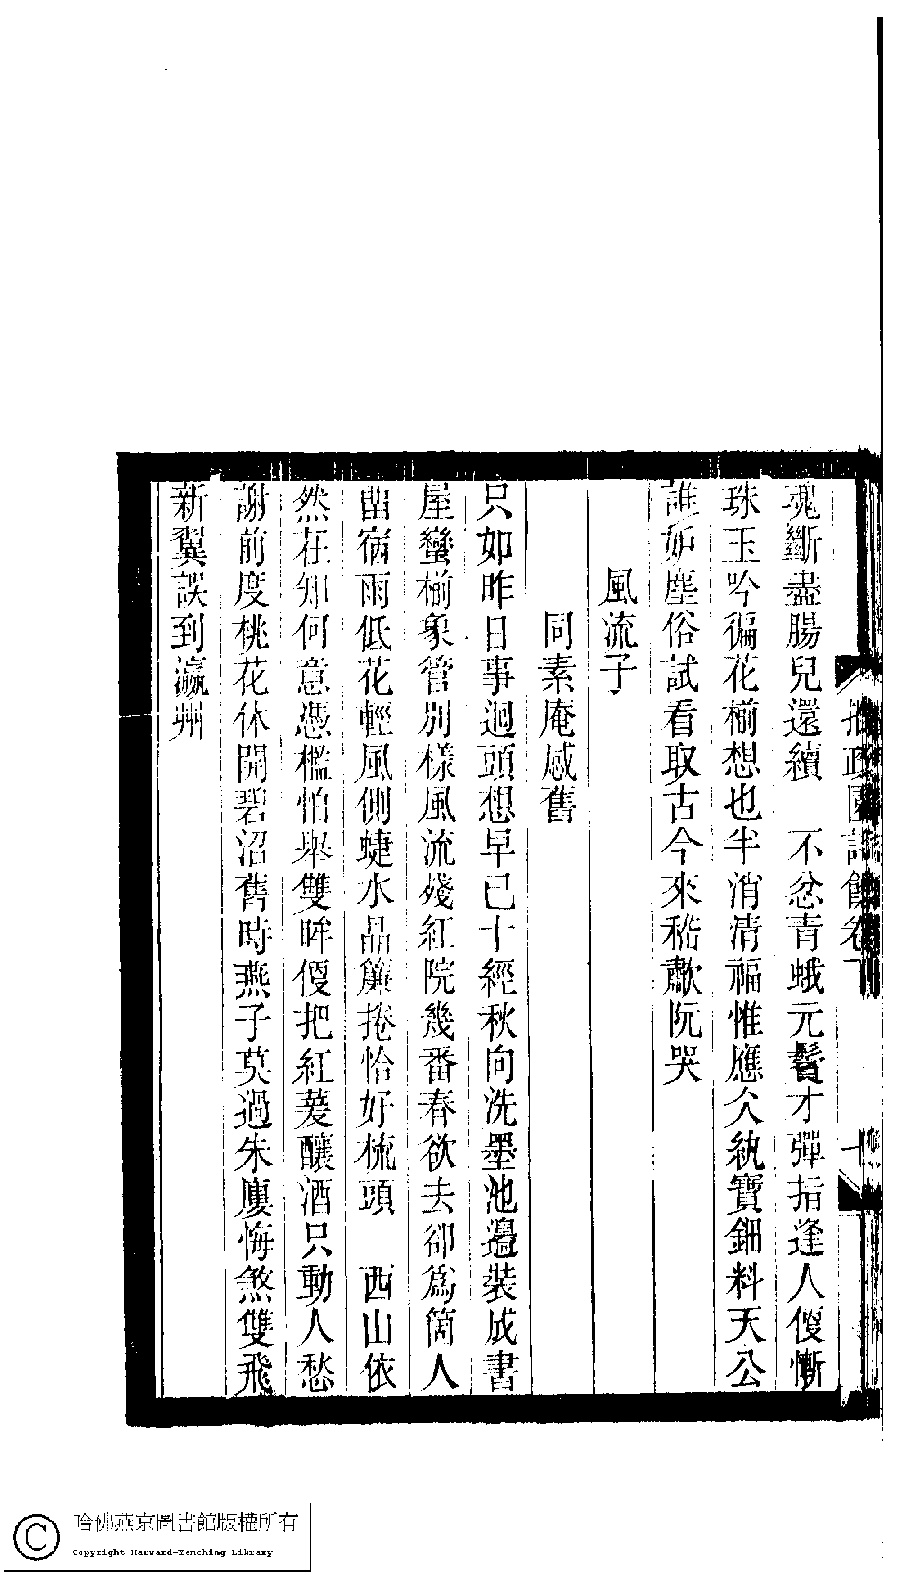 拙政園詩餘卷下
十
魂斷盡腸兒還續　不忿青蛾元鬢才彈指逢人傁慚
珠玉吟徧花椾想也半消清福惟應亽紈寶鈿料天公
誰如塵俗試看取古今來嵇歗阮哭
風流子
同素庵感舊
只如昨日事迴頭想早已十經秋向洗墨池邉裝成書
屋蠻椾象管別樣風流殘紅院幾番春欲去卻爲箇人
畱宿雨低花輕風側蜨水晶簾捲恰好梳頭　西山依
然在知何意憑檻怕舉雙眸傁把紅萲釀酒只動人愁
謝前度桃花休開碧沼舊時燕子莫過朱廔悔煞雙飛
新翼誤到瀛州
哈佛燕京圖書館版權所有
Copyright Harvard-Yenching Library